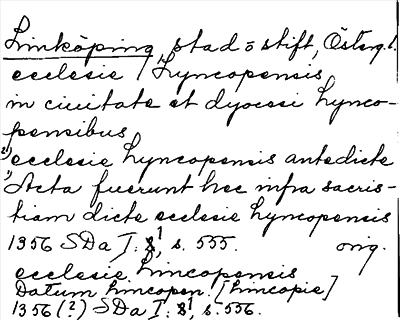 Linköping, stad o stift, Österg.l.
ecclesie Lyncopensis
in ciuitate et dyocesi Lynco-
pensibus
2) ecclesie Lyncopensis antedicte
Acta fuerunt hec infra sacris-
tiam dicte ecclesie Lyncopensis
1356 SDa I. 1, s. 555. orig.
ecclesie Lincopensis
Datum Lincopen. [Lincopie]
1356 (?) SDa I. 1, s. 556.